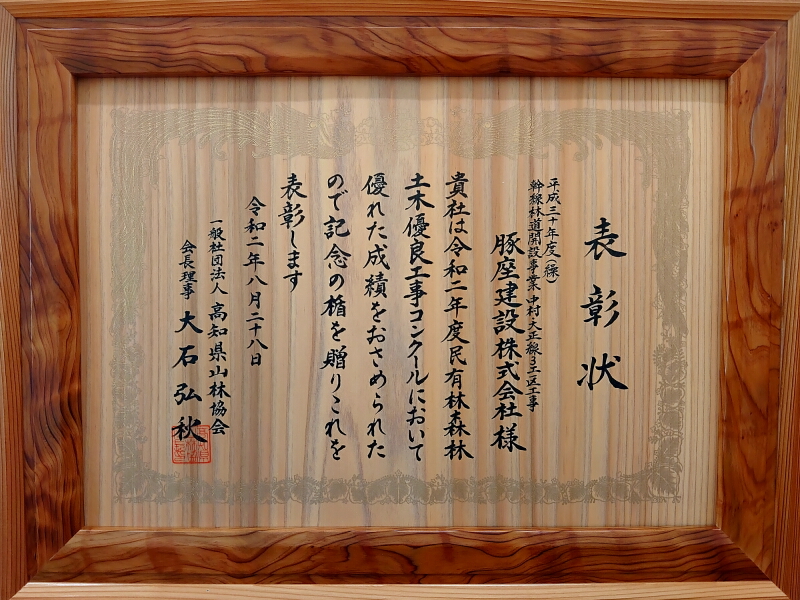 表彰状
平成三十年度(繰)
幹線林道開設事業 中村・大正線3工区工事
豚座建設株式会社 様
貴社は令和二年度民有林森林
土木優良工事コンクールにおいて
優れた成績をおさめられた
ので記念の楯を贈りこれを
表彰します
令和二年八月二十八日
一般社団法人 高知県山林協会
会長理事 大石弘秋